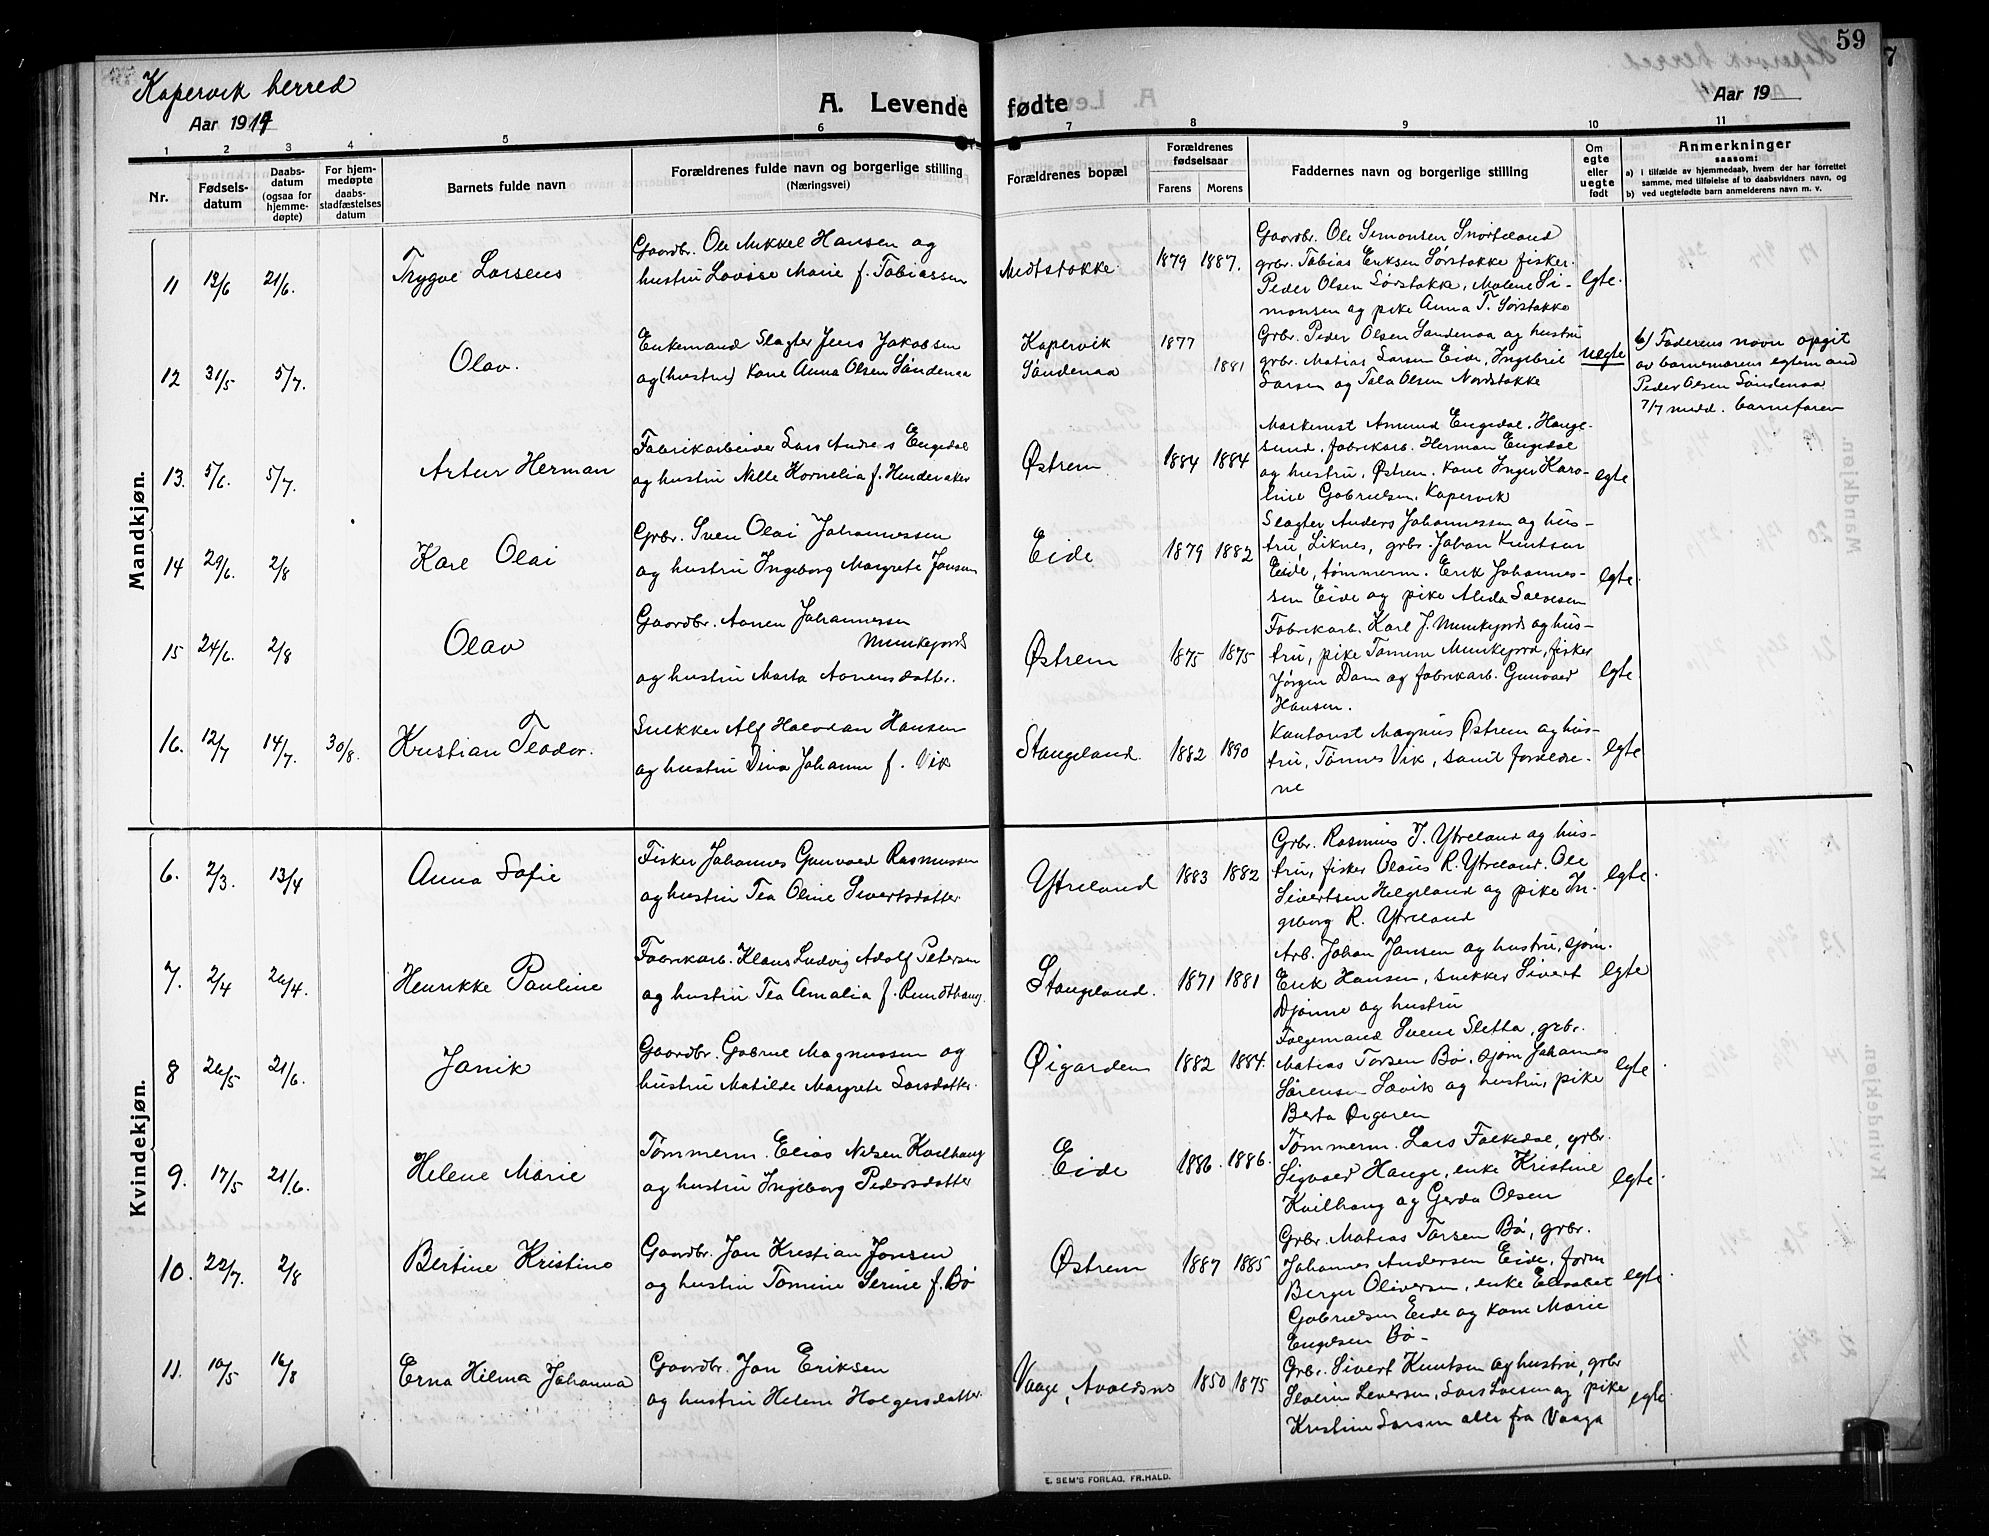 59
Kopervik herred
Aar 1914
A. Levende fødte
Aar 19
1 2 3 4 5 6 7 8 9 10 11
Nr.
Fødsels-
datum
Daabs-
datum
(ogsaa for
hjemme-
døpte)
For hjem-
medøpte
daabs-
stadfæstelses
datum
Barnets fulde navn
Forældrenes fulde navn og borgerlige stilling
(Næringsvei)
Forældrenes bopæl
Forældrenes
fødselsaar
Farens Morens
Faddernes navn og borgerlige stilling
Om
egte
eller
uegte
født
Anmerkninger
saasom:
a) i tilfælde av hjemmedaab, hvem der har forrettet
samme, med tilføielse af to daabsvidners navn, og
b) ved uegtefødte barn anmelderens navn m. v.
Mandkjøn.
11 13/6 21/6. Trygve Lorsens
Gaardbr. Ole Mikkel Hansen og
hustru Lovise Marie f. Tobiassen
Midtstokke 1879 1887.
Gaardbr. Ole Simonsen Snorteland
grbr. Tobias Eriksen Sørstokke fisker.
Peder Olsen Sørstokke, Malene Si-
monsen og pike Anna T. Sørstokke
egte.
12 31/5 5/7. Olav.
Enkemand Slagter Jens Jakobsen
og (hustru) kone Anna Olsen Søndenaa
Kopervik 1877
Søndenaa 1881
Grbr. Peder Olsen Søndenaa og hustru
grbr. Matias Larsen Eide, Ingebrit
Larsen og Tala Olsen Nordstokke
uegte
b/ Faderens navn opgit
av barnemorens egtemand
Peder Olsen Søndenaa
7/7 medd. barnefaren
13. 5/6. 5/7. Artur Herman
Fabrikarbeider Lars Andreas Engedal
og hustru Nille Kornelia f. Hinderaker
Østrem 1884 1884
Maskinist Amund Engedal, Hauge-
sund, fabrikarb. Herman Engedal
og hustru, Østrem, kone Inger Karo-
line Gabrielsen, Kopervik
egte
14 29/6. 2/8 Karl Olai
Grbr. Sven Olai Johannessen
og hustru Ingeborg Margrete Jonsen
Eide 1879 1882
Slagter Anders Johannessen og hus-
tru, Liknes, grbr. Johan Knutsen
Eide, tømmerm. Erik Johannes-
sen Eide og pike Alida Salvesen
egte.
15 24/6. 2/8 Olav
Gaardbr. Aanen Johannessen
Munkejord
og hustru Marta Aanensdatter.
Østrem 1875 1875
Fabrikarb. Karl J. Munkejord og hus-
tru, pike Tomine Munkejord, fisker
Jørgen Dam og fabrikarb. Gunvald
Hansen.
egte.
16. 12/7 14/7. 30/8. Kristian Teodor.
Snekker Alf Halvdan Hansen
og hustru Dina Johanne f. Vik
Stangeland. 1882 1890
Kontorist Magnus Østrem og hus-
tru, Tønnes Vik, samt foreldre-
ne
egte
Kvindekjøn.
6. 2/3. 13/4 Anna Sofie
Fisker Johannes Gunvald Rasmussen
og hustru Tea Oline Sivertsdatter
Ytreland 1883 1882
Grbr. Rasmus J. Ytreland og hus-
tru, fisker Olaus R. Ytreland. Ole
Sivertsen Helgeland og pike In-
geborg R. Ytreland
egte.
7. 2/4 26/4. Henrikke Pauline
Fabrikarb. Klaus Ludvig Adolf Petersen
og hustru Tea Amalia f. Rundthaug
Stangeland. 1871 1881
Arb. Johan Jansen og hustru, sjøm.
Erik Hansen, snekker Sivert
Djønne og hustru
egte
8 26/5 21/6. Janik
Gaardbr. Gabriel Magnussen og
hustru Matilde Margrete Larsdatter.
Øigarden 1882 1884.
Følgemand Svene Sletta, grbr.
Matias Torsen Bø, sjøm Johannes
Sørensen Sævik og hustru, pike
Berta Øigaren
egte
9. 17/5 21/6. Helene Marie
Tømmerm. Elias Nilsen Kvilhaug
og hustru Ingeborg Pedersdatter
Eide 1886. 1886.
Tømmerm. Lars Falkedal, grbr.
Sigvald Hauge, enke Kristine
Kvilhaug og Gerda Olsen
egte.
10. 22/7. 2/8 Bertine Kristine
Gaardbr. Jon Kristian Jonsen
og hustru Tomine Serine f. Bø
Østrem 1887 1885
Grbr. Matias Torsen Bø, grbr.
Johannes Andersen Eide, form
Berger Oliversen, enke Elisabet
Gabrielsen Eide og kone Marie
Engelsen Bø -
egte
11. 10/5 16/8 Erna Hilma Johanna
Gaardbr. Jon Eriksen
og hustru Helene Holgersdatter
Vaage, Avaldsnes 1850 1875
Grbr. Sivert Knutsen og hustru, grbr
Severin Seversen, Lars Larsen og pike
Kristine Larsen alle fra Vaage
egte
E. SEM'S FORLAG, FR.HALD.